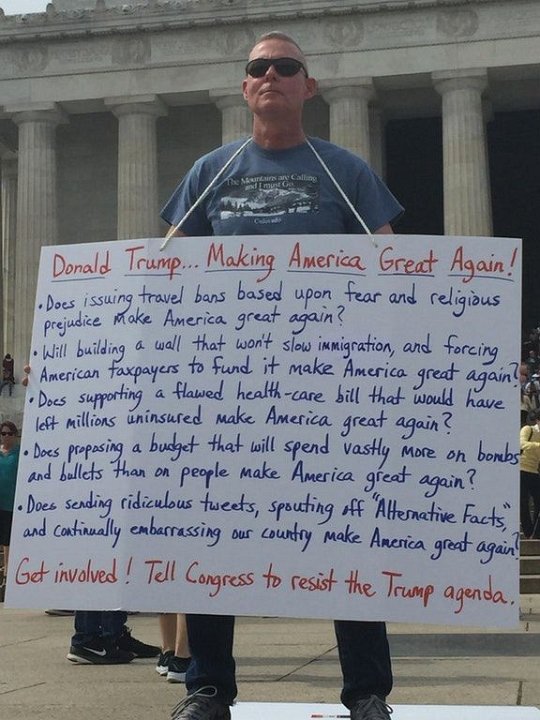 The Mountains are Calling
and I must Go
Colorado
Donald Trump... Making America Great Again!
• Does issuing travel bans based upon fear and religious
prejudice make America great again?
• Will building a wall that won't slow immigration, and forcing
American taxpayers to fund it make America great again?
• Does supporting a flawed health-care bill that would have
left millions uninsured make America great again?
• Does proposing a budget that will spend vastly more on bombs
and bullets than on people make America great again?
• Does sending ridiculous tweets, spouting off "Alternative Facts",
and continually embarrassing our country make America great again?
Get involved! Tell Congress to resist the Trump agenda.